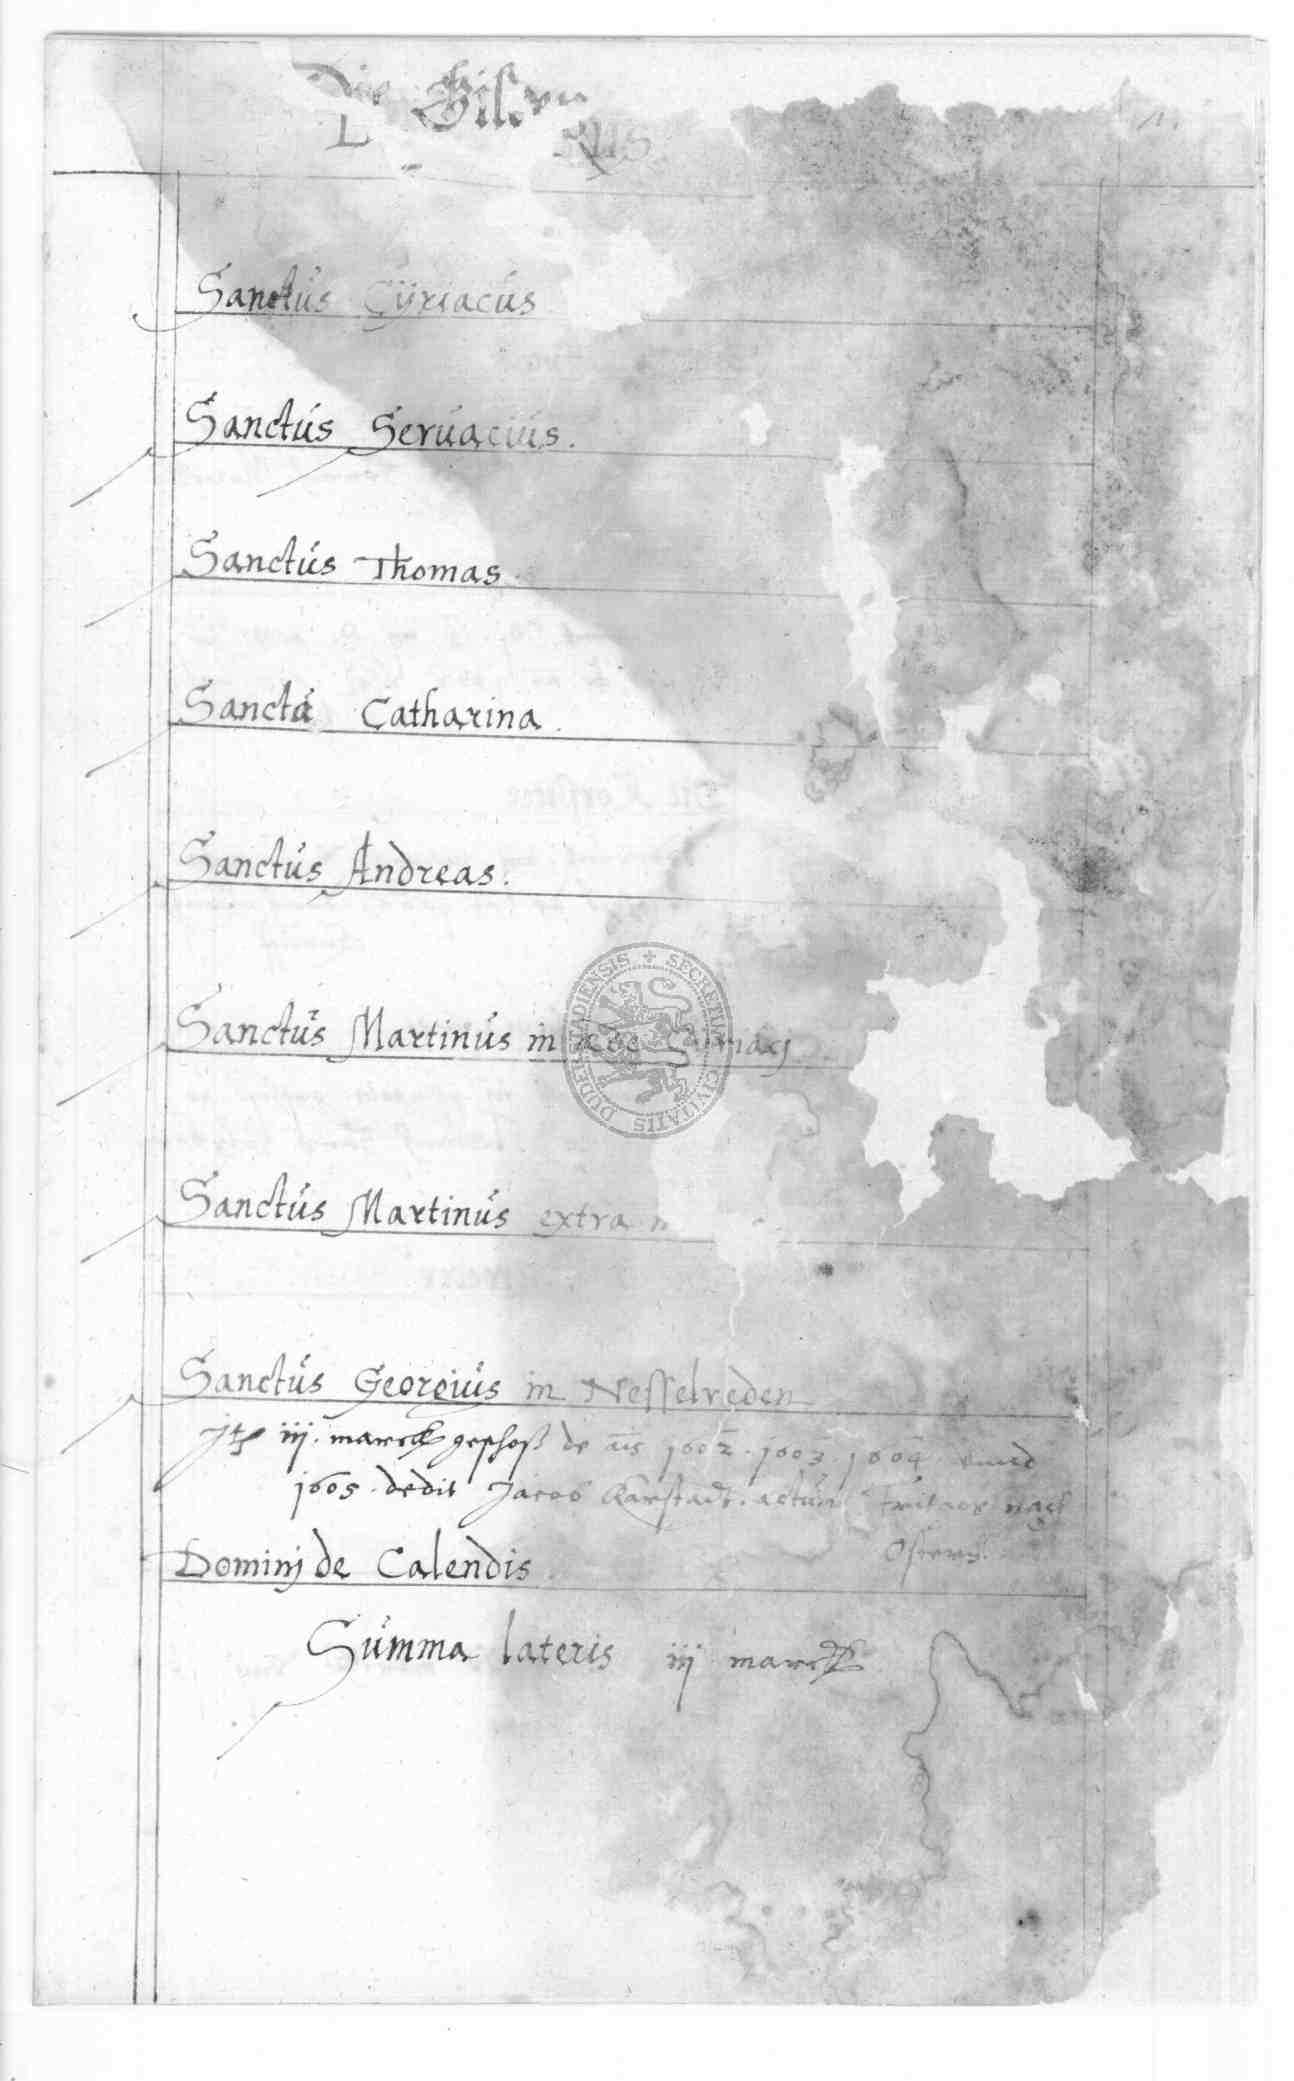 Die
Sanctus Cÿriacus
Sanctus Servacius.
Sanctus Thomas.
Sancta Catharina.
Sanctus Andreas.
Sanctus Martinus in
Sanctus Martinus extra
Sanctus Georgius in Nesselreden
iij. marck geschoß de ais 1602. 1603. 1604. unnd
1605. dedit Jacob Karstadt. actum freitags nach
Ostern.
Dominj de Calendis
Summa lateris iij marck
SECRETUM CIVITATIS DUDERSTADIENSIS